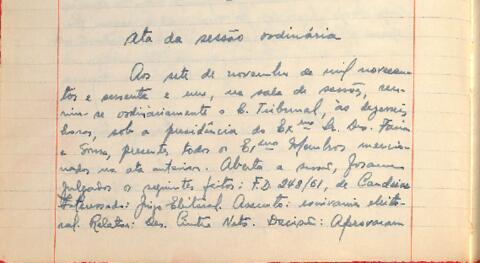 Ata da sessão ordinária
Aos sete de novembro de mil novecen-
tos e sessenta e um, na sala de sessões, reu-
niu-se ordinariamente o E. Tribunal, às dezesseis
horas, sob a presidência do Exmo Sr. Des. Faria
e Sousa, presentes todos os Exmos Membros mencio-
nados na ata anterior. Aberta a sessão, foram
julgados os seguintes feitos: F.D 248/61, de Candeias
Interessado: Juízo Eleitoral. Assunto: escrivania eleito-
ral. Relator: Des. Cintra Neto. Decisão: Aprovaram